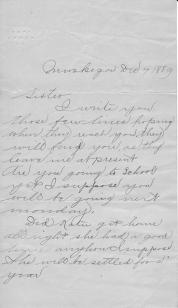 Muskegon Dec 9 1889
Sister
I write you
those few lines hoping
when they reach you they
will find you as they
leave me at present
Are you going to School
yet I suppose you
will to going next
monday.
Did Katie get home
allright she had a good
anyhow I suppose
she will to settled for
year